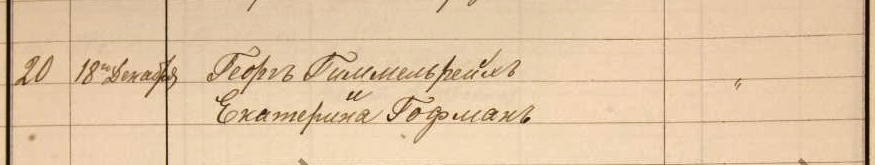 20 18го Декабря Георгъ Гиммельрейхъ "
и
Екатерина Гофманъ